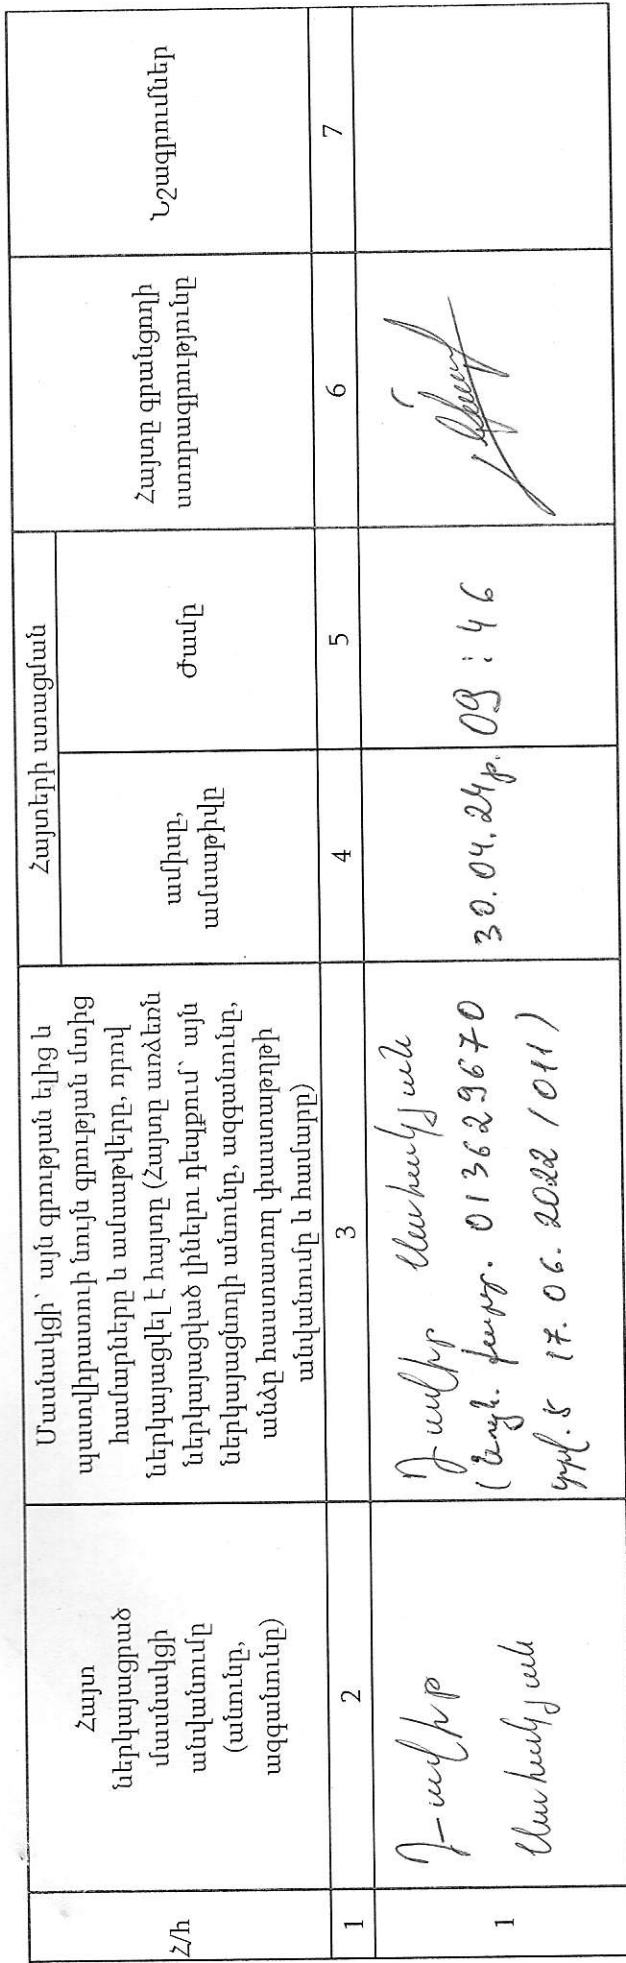 Հ/հ
Հայտ
ներկայացրած
մասնակցի
անվանումը
(անունը,
ազգանունը)
Մասնակցի՝ այն գրության ելից և
պատվիրատուի նույն գրության մտից
համարները և ամսաթվերը, որով
ներկայացվել է հայտը (Հայտը առձեռն
ներկայացված լինելու դեպքում՝ այն
ներկայացնողի անունը, ազգանունը,
անձը հաստատող փաստաթղթի
անվանումը և համարը)
Հայտերի ստացման
ամիսը,
ամսաթիվը
ժամը
Հայտը գրանցողի
ստորագրությունը
Նշագրումներ
1
2
3
4
5
6
7
1
Դավիթ
Սահակյան
Դավիթ Սահակյան
(նույն. քարտ. 013629670
տրվ. է 17.06.2022 / 011)
30.04.24թ.
09 : 46